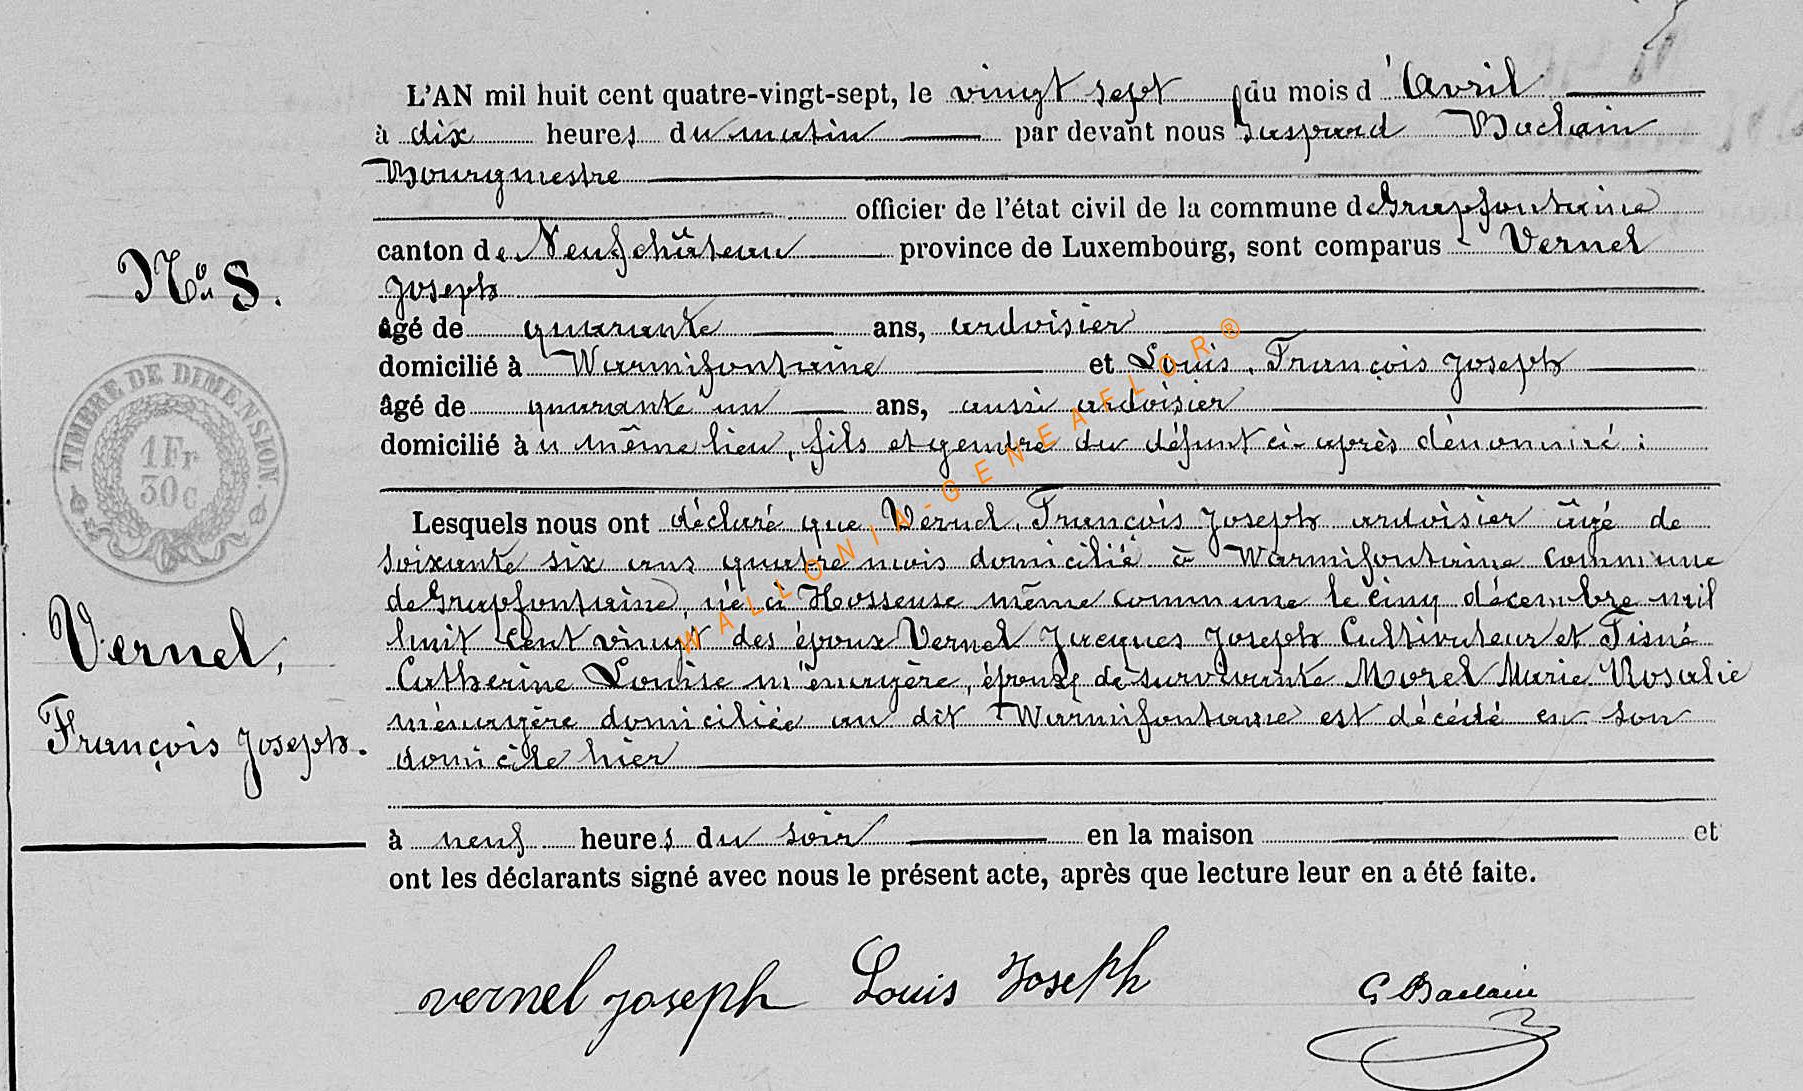 L'AN mil huit cent quatre-vingt-sept, le vingt sept du mois d'Avril
à dix heures du matin par devant nous Gaspard Baclain
Bourgmestre
officier de l'état civil de la commune de Grapfontaine
canton de Neufchâteau province de Luxembourg, sont comparus Vernel
Joseph
âgé de quarante ans, ardoisier
domicilié à Warmifontaine et Louis, François Joseph
âgé de quarante un ans, aussi ardoisier
domicilié à u même lieu, fils et gendre du défunt ci-après dénommé :
Lesquels nous ont déclaré que Vernel, François Joseph ardoisier âgé de
soixante six ans quatre mois domicilié à Warmifontaine commune
de Grapfontaine, né à Hosseuse même commune le cinq décembre mil
huit cent vingt des époux Vernel Jacques Joseph Cultivateur et Tisné
Catherine Louise ménagère, époux de survivante Morel Marie Rosalie
ménagère domiciliée au dit Warmifontaine est décédé en son
domicile hier
à neuf heures du soir en la maison et
ont les déclarants signé avec nous le présent acte, après que lecture leur en a été faite.
vernel joseph Louis Joseph G Baclain
No 8.
TIMBRE DE DIMENSION
1 Fr
30 c
Vernel,
François Joseph.
WALLONIA-GENEAFLOR®